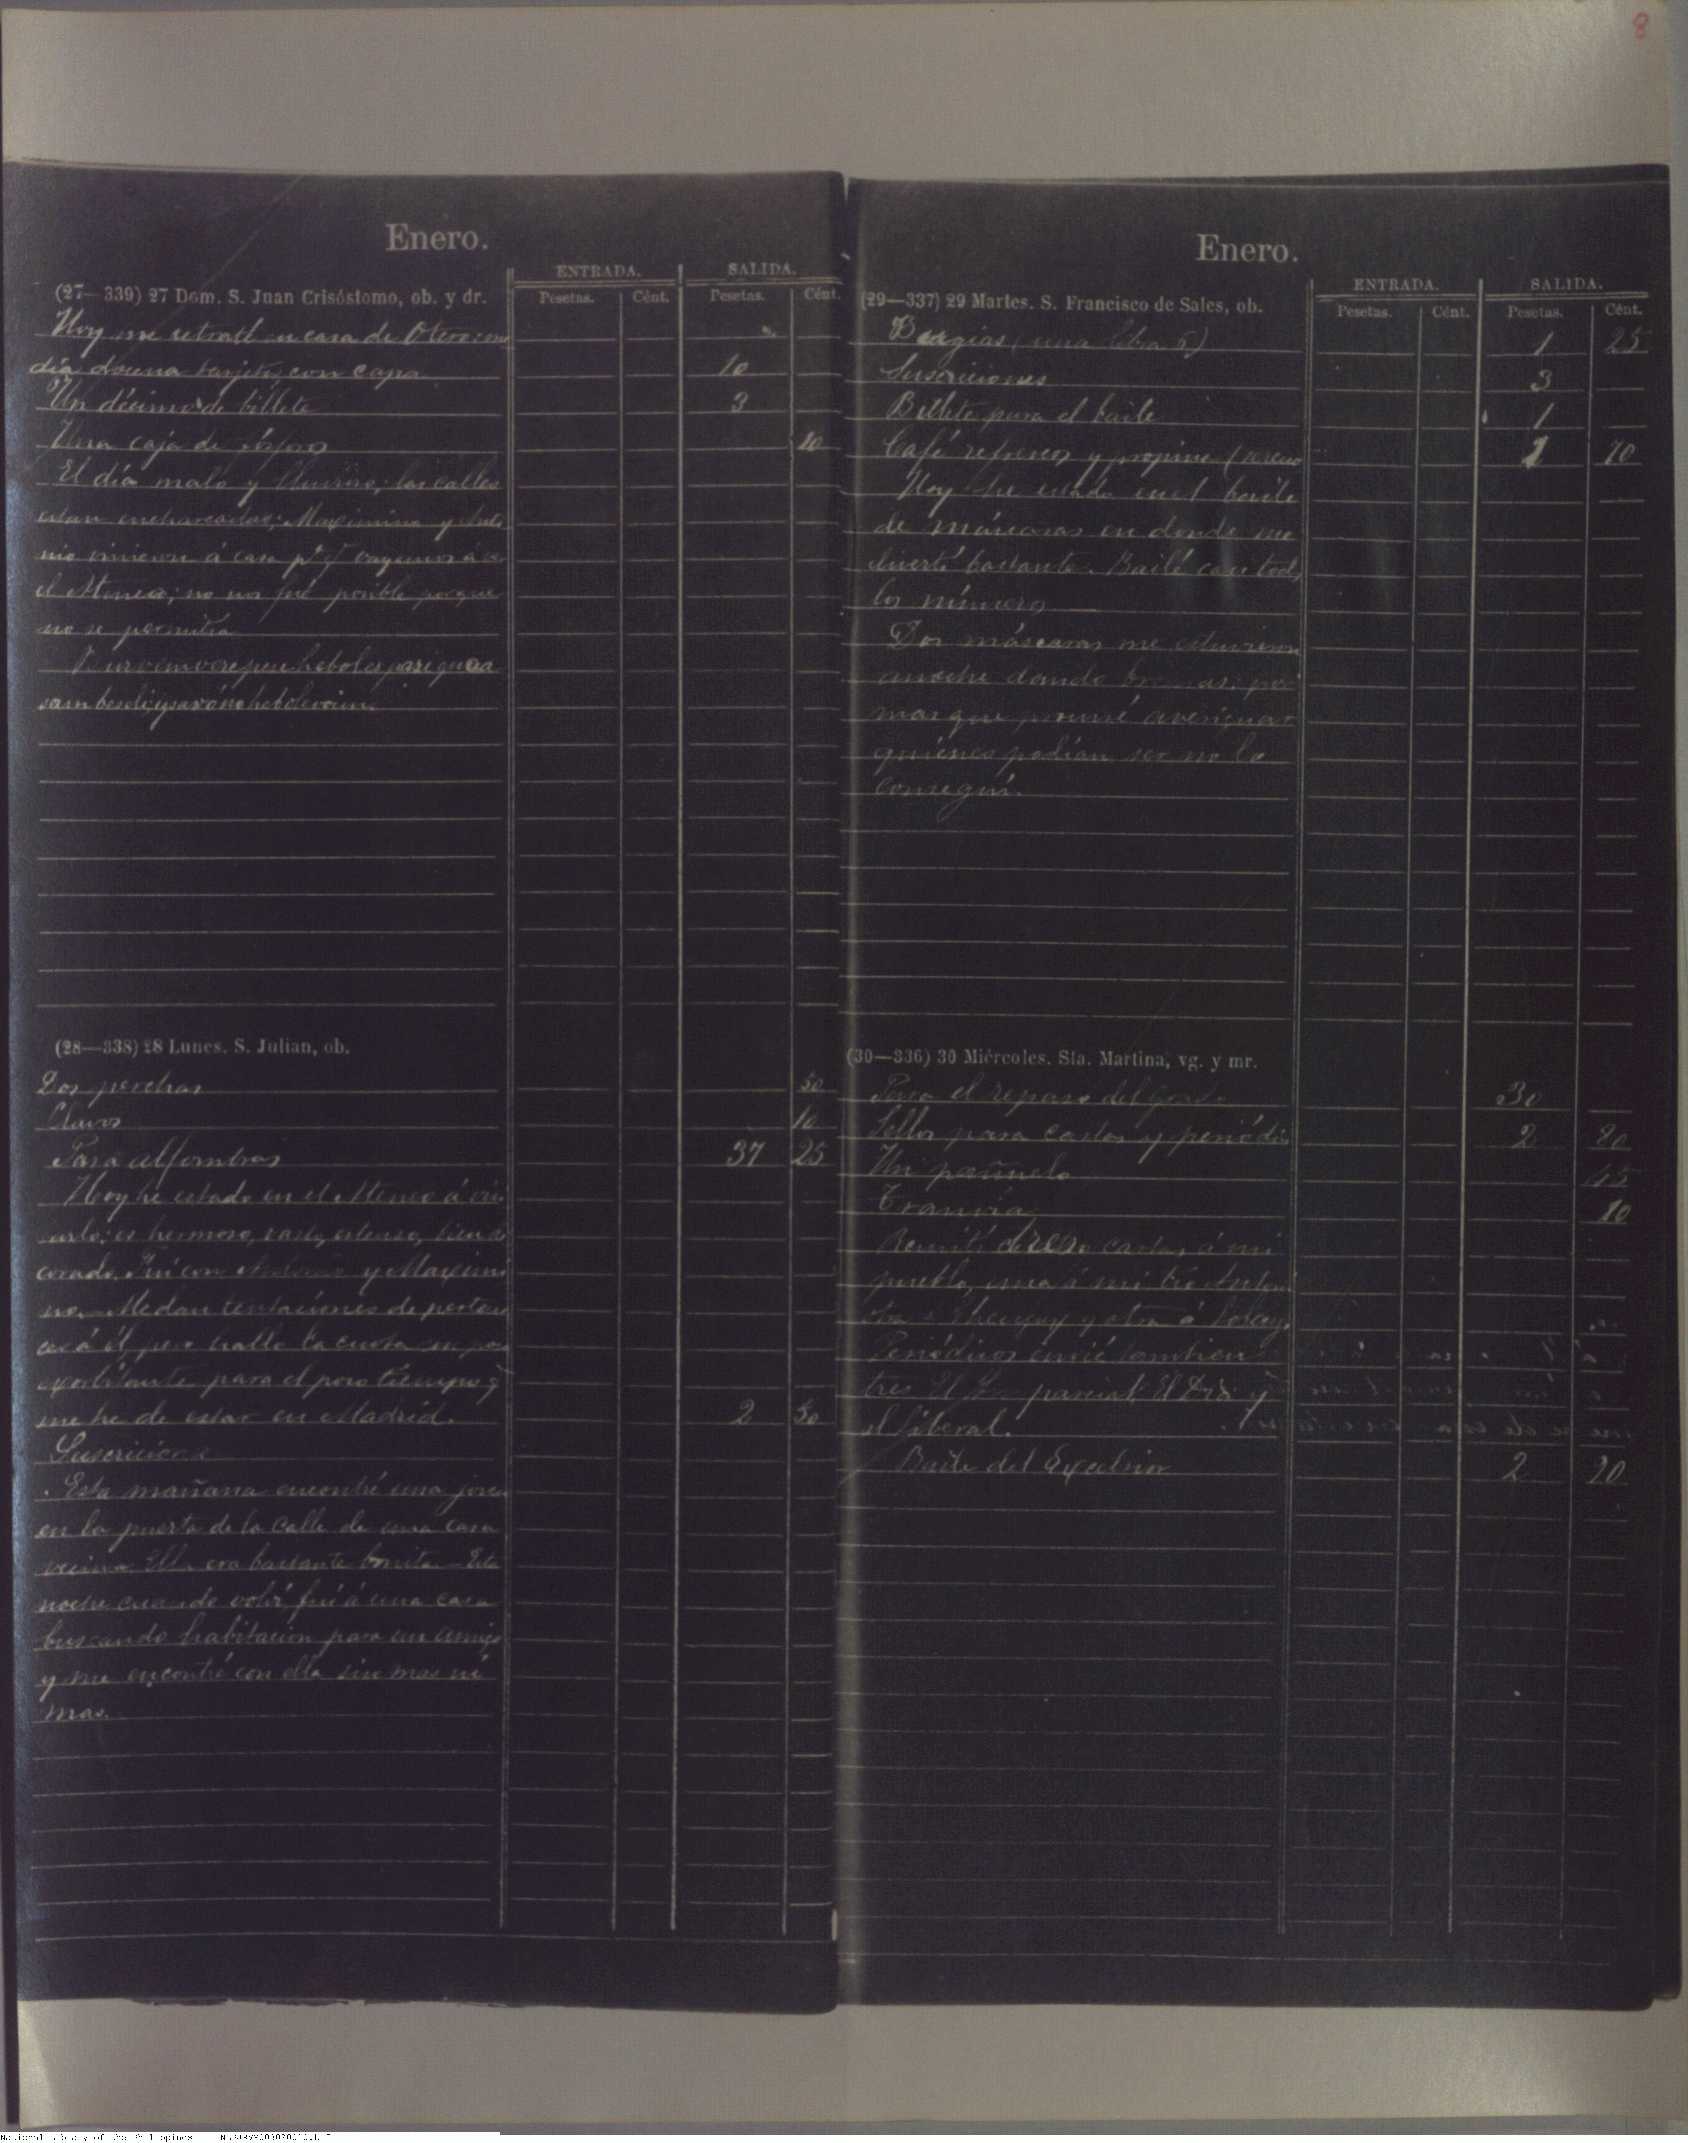 8
Enero.
ENTRADA. SALIDA.
(27—339) 27 Dom. S. Juan Crisóstomo, ob. y dr. Pesetas. Cént. Pesetas. Cént.
Hoy me retraté en casa de Otero:
día docena tarjetas con capa 10
Un décimo de billete 3
Una caja de fósforos 10
El día malo y lluvioso; las calles
estan encharcadas; Maximino y Anto
nio vinieron á casa pª q̃ vayamos á
el Ateneo; no nos fué posible porque
no se permitía
(28—338) 28 Lunes. S. Julian, ob.
Dos perchas 50
Clavos 10
Para alfombras 37 25
Hoy he estado en el Ateneo á visi
tarlo: es hermoso, vasto, estenso, bien de
corado. Fuí con Antonio y Maximi
no. Me dan tentaciones de pertene
cer á él, pero hallo la cuota un poco
exorbitante para el poco tiempo q̃
me he de estar en Madrid. 2 50
Suscriciones
Esta mañana encontré una joven
en la puerta de la calle de una casa
vecina. Ella era bastante bonita. Esta
noche cuando volví, fuí á una casa
buscando habitacion para un amigo
y me encontré con ella sin mas ni
mas.
Enero.
ENTRADA. SALIDA.
(29—337) 29 Martes. S. Francisco de Sales, ob. Pesetas. Cént. Pesetas. Cént.
Bugias (una libra 5) 1 25
Suscriciones 3
Billete para el baile 1
Café refrescos y propina (sereno 1 70
Hoy he estado en el baile
de máscaras en donde me
divertí bastante. Bailé casi todos
los números
Dos máscaras me estuvieron
anoche dando bromas; por
mas que procuré averiguar
quienes podían ser no lo
conseguí.
(30—336) 30 Miércoles. Sta. Martina, vg. y mr.
Para el repaso del Grado 30
Sellos para cartas y periódicos 2 80
Un pañuelo 45
Tranvía 10
Remití cartas á mi
pueblo, una á mi tío Antonio
otra á Chenguy y otra á
Periódicos envié tambien
tres El Imparcial, El Día y
el Liberal.
Baile del Excelsior 2 90